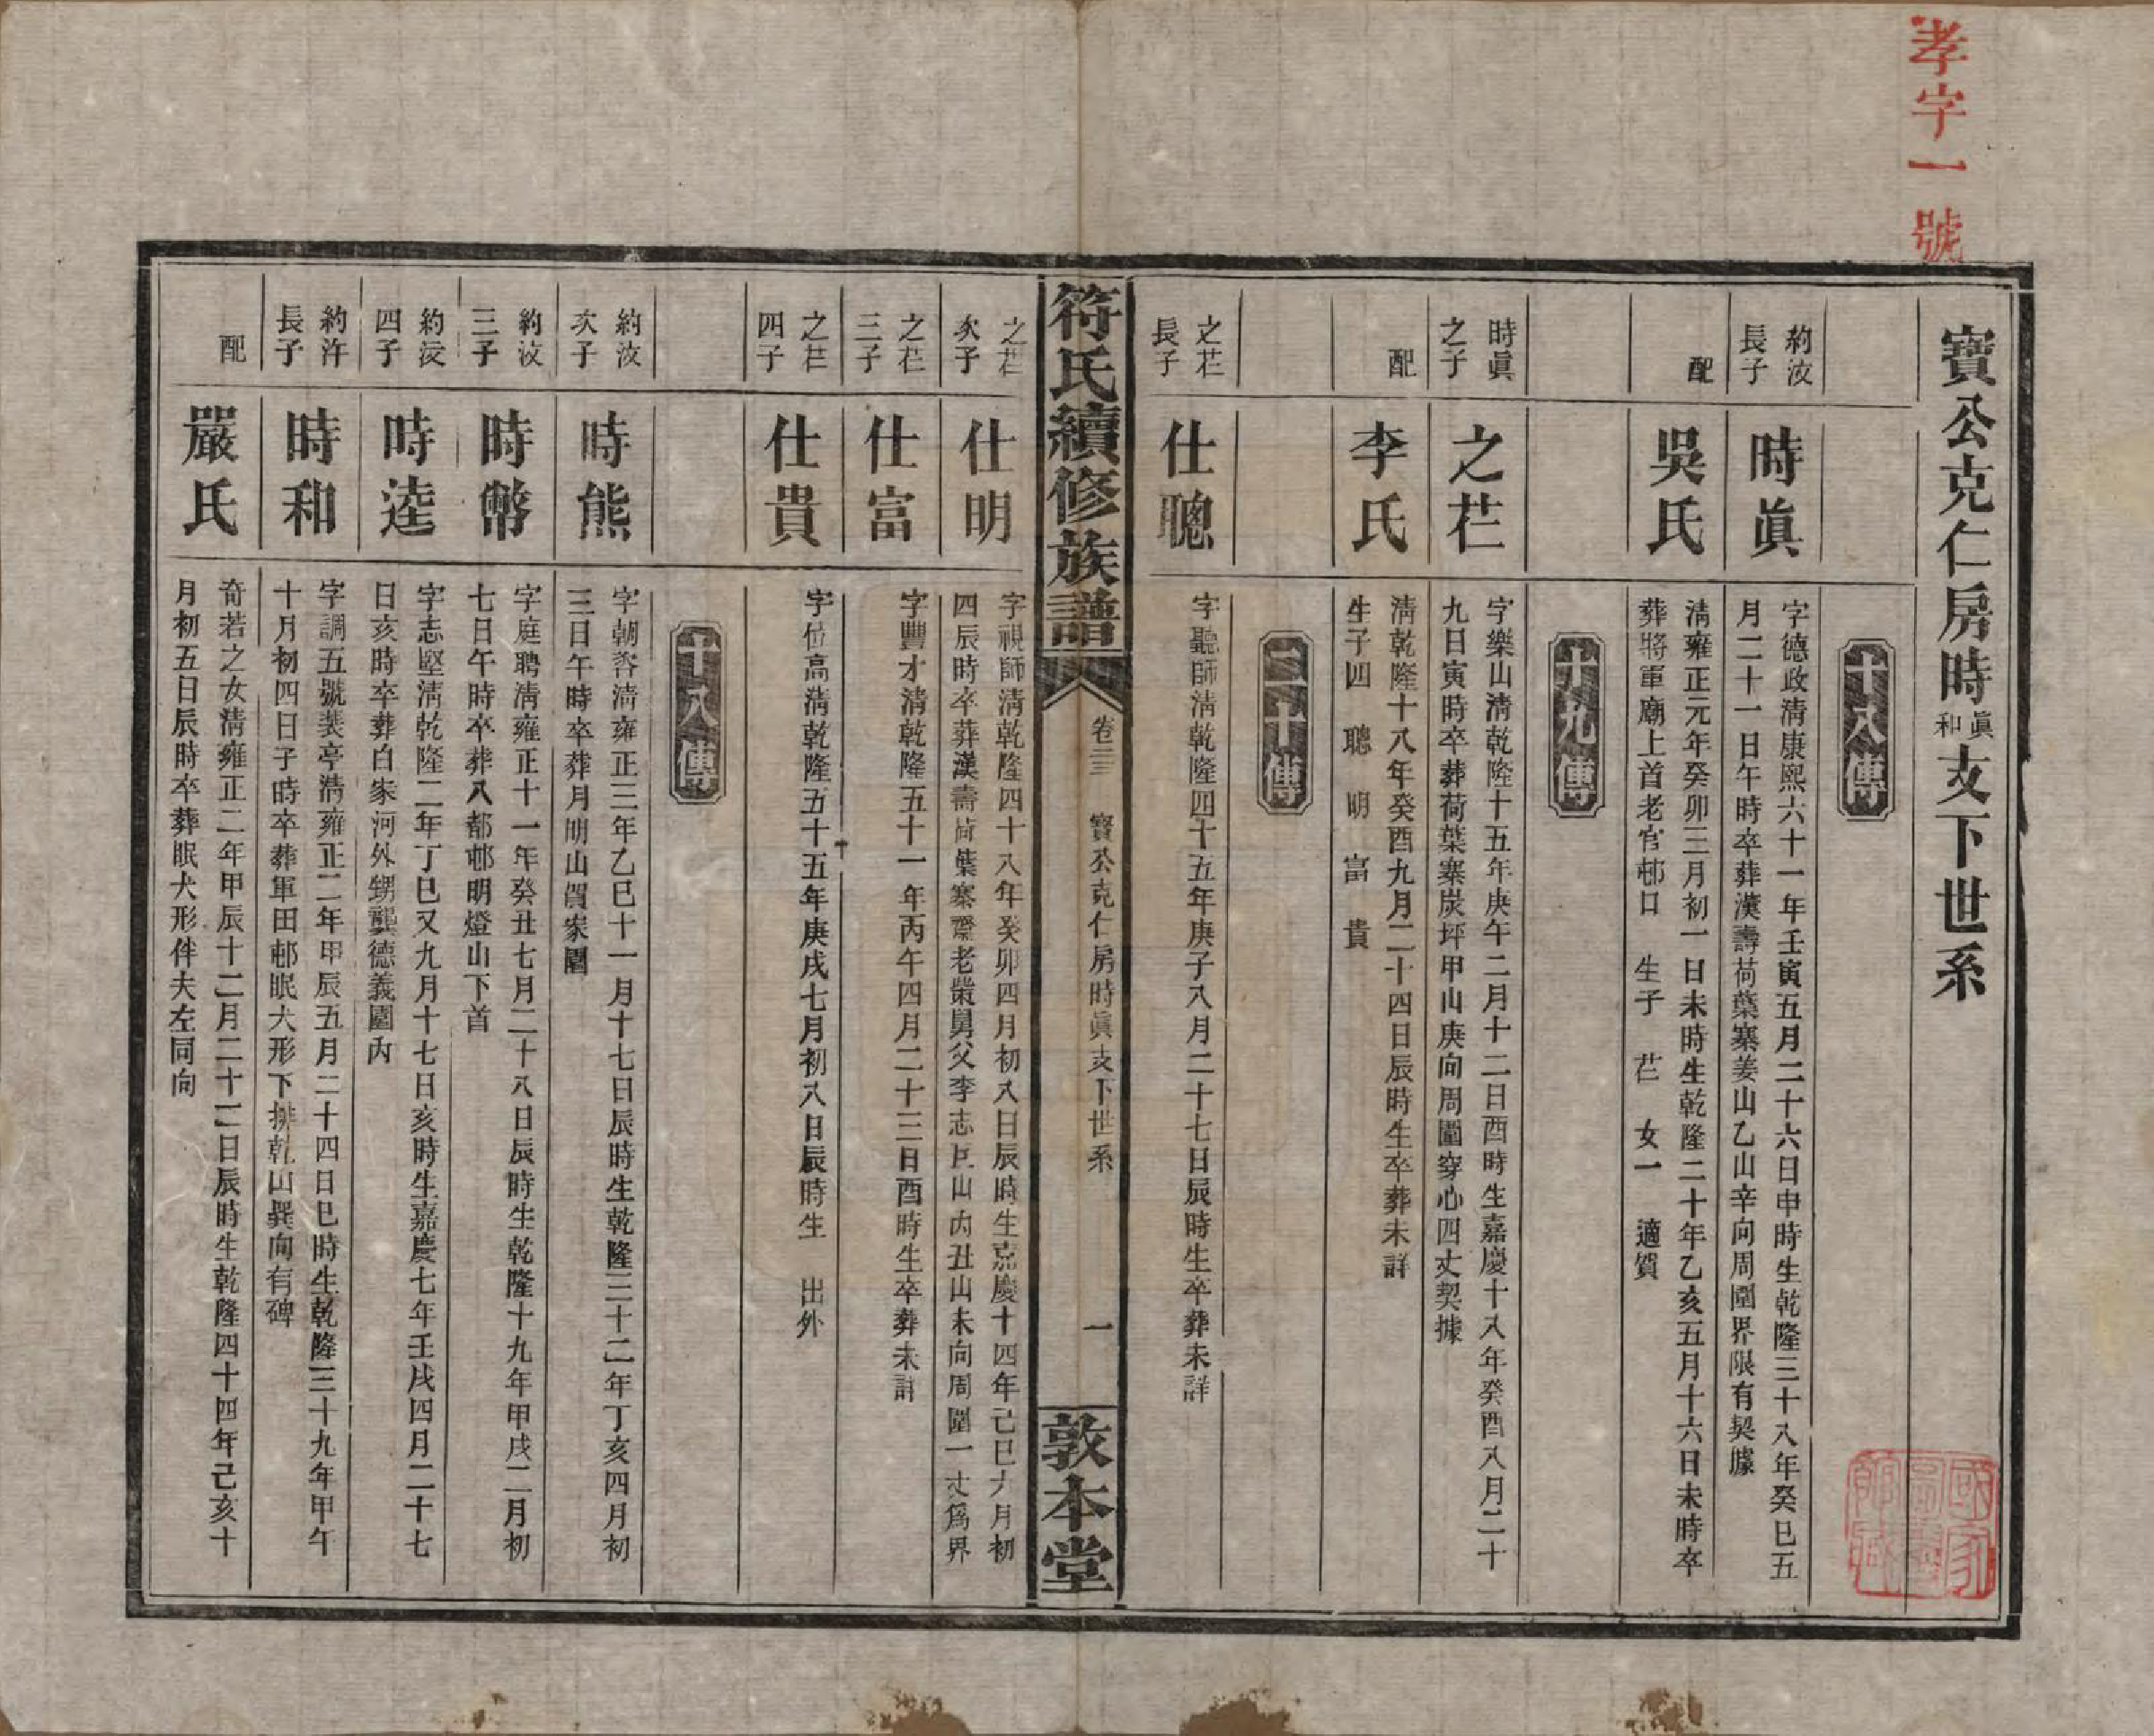 孝字一號
寶公克仁房時眞和支下世系
十八傳
約汝長子
時眞
字德政淸康熙六十一年壬寅五月二十六日申時生乾隆三十八年癸巳五
月二十一日午時卒葬漢壽荷葉寨姜山乙山辛向周圍界限有契據
配
吳氏
淸雍正元年癸卯三月初一日未時生乾隆二十年乙亥五月十六日未時卒
葬將軍廟上首老官邨口 生子 芢 女一 適賀
十九傳
時眞之子
之芢
字樂山淸乾隆十五年庚午二月十二日酉時生嘉慶十八年癸酉八月二十
九日寅時卒葬荷葉寨炭坪甲山庚向周圍穿心四丈契據
配
李氏
淸乾隆十八年癸酉九月二十四日辰時生卒葬未詳
生子四 聰 明 富 貴
二十傳
之芢長子
仕聰
字聽師淸乾隆四十五年庚子八月二十七日辰時生卒葬未詳
符氏續修族譜
卷三 寶公克仁房時眞支下世系
一
敦本堂
之芢次子
仕明
字視師淸乾隆四十八年癸卯四月初八日辰時生嘉慶十四年己巳六月初
四辰時卒葬漢壽荷葉寨老榮舅父李志山內丑山未向周圍一丈爲界
之芢三子
仕富
字豐才淸乾隆五十一年丙午四月二十三日酉時生卒葬未詳
之芢四子
仕貴
字位高淸乾隆五十五年庚戌七月初八日辰時生 出外
十八傳
約汝次子
時熊
字朝淸雍正三年乙巳十一月十七日辰時生乾隆三十二年丁亥四月初
三日午時卒葬月明山賀家園
約汝三子
時幣
字庭聘淸雍正十一年癸丑七月二十八日辰時生乾隆十九年甲戌二月初
七日午時卒葬八都邨明燈山下首
約汝四子
時逵
字志堅淸乾隆二年丁巳又九月十七日亥時生嘉慶七年壬戌四月二十七
日亥時卒葬白家河外甥龔德義園內
約許長子
時和
字調五號裴亭淸雍正二年甲辰五月二十四日巳時生乾隆三十九年甲午
十月初四日子時卒葬軍田邨眠犬形下排乾山巽向有碑
配
嚴氏
奇若之女淸雍正二年甲辰十二月二十二日辰時生乾隆四十四年己亥十
月初五日辰時卒葬眠犬形伴夫左同向
國家圖書館藏